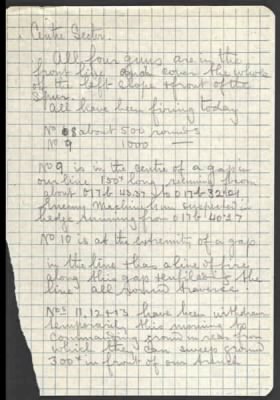 Centre Sector.
All four guns are in the
front line and cover the whole
of the left slope & front of the
Spur.
All have been firing today
No 8 about 500 rounds
No 9 1000 —
No 9 is in the centre of a gap in
our line 150x long running from
about O17b 4037 to O17b
Enemy Machine Gun suspected in
hedge running from O17b 4037
No 10 is at the extremity of a gap
in the line & has a line of fire
along this gap & enfilades the
line all round traverse.
Nos 11, 12 & 13 have been withdrawn
temporarily this morning to
commanding ground in rear from
which they can sweep ground
300x in front of our trench